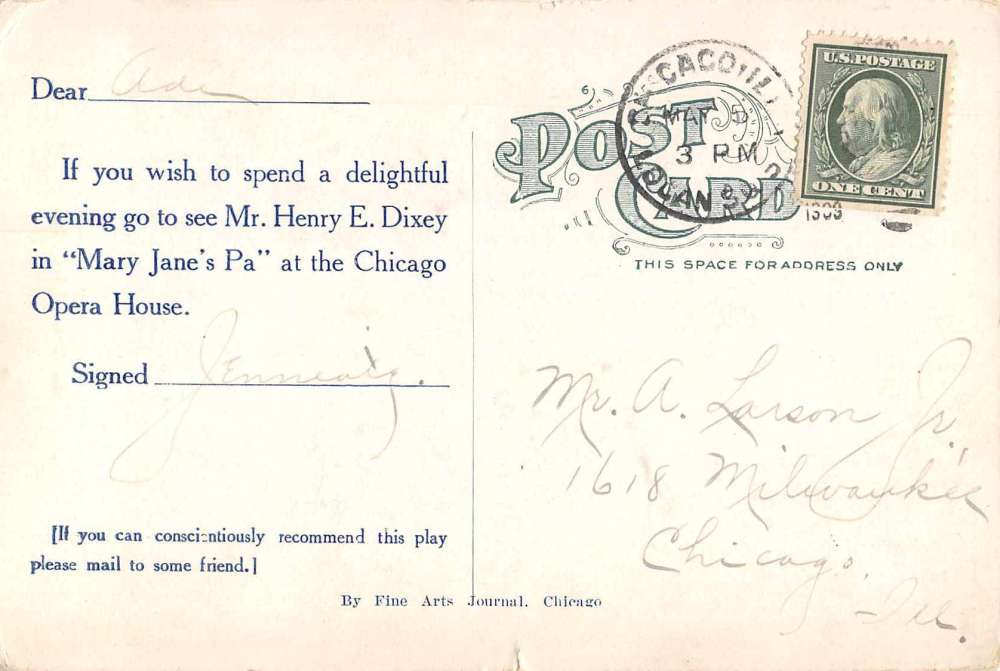 Dear Ade
If you wish to spend a delightful
evening go to see Mr. Henry E. Dixey
in “Mary Jane’s Pa” at the Chicago
Opera House.
Signed
[If you can conscientiously recommend this play
please mail to some friend.]
By Fine Arts Journal. Chicago
POST
CARD
THIS SPACE FOR ADDRESS ONLY
CHICAGO, ILL
MAY 5
3 PM
1909
LOGAN SQ
U.S. POSTAGE
ONE CENT
Mr. A. Larson Jr.
1618 Milwaukee
Chicago.
Ill.